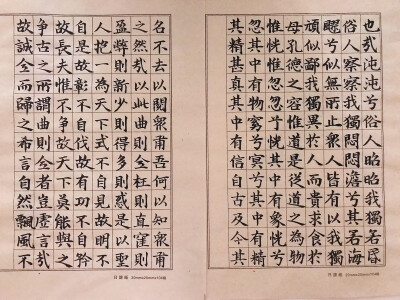 也哉沌沌兮俗人昭昭我獨若昏
俗人察察我獨悶悶澹兮其若海
飂兮似無所止衆人皆有以我獨
頑似鄙我獨異於人而貴求食於
母孔德之容惟道是從道之為物
惟恍惟惚惚兮恍其中有象恍兮
惚其中有物窈兮冥兮其中有精
其精甚真其中有信自古及今其
名不去以閱衆甫吾何以知衆甫
之然哉以此曲則全枉則直窪則
盈弊則新少則得多則惑是以聖
人抱一為天下式不自見故明不
自是故彰不自伐故有功不自矜
故長夫惟不爭故天下莫能與之
爭古之所謂曲則全者豈虛言哉
故誠全而歸之希言自然飄風不